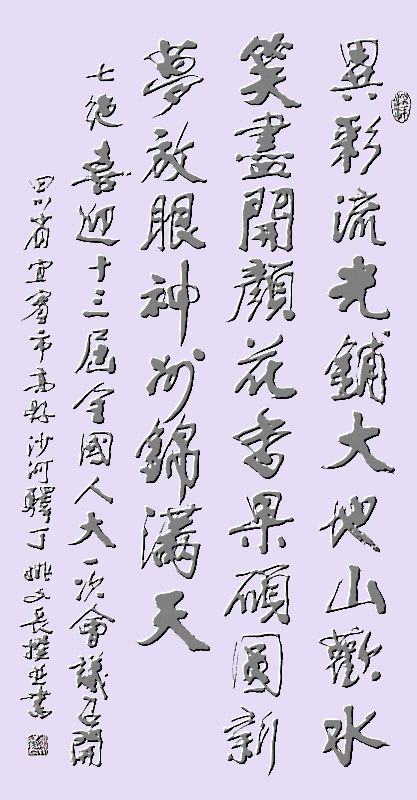 異彩流光鋪大地山歡水
笑盡開顏花香果碩圓新
夢放眼神州錦滿天
七絶喜迎十三屆全國人大一次會議召開
四川省宜賓市高縣沙河驛丁姚文長撰並書